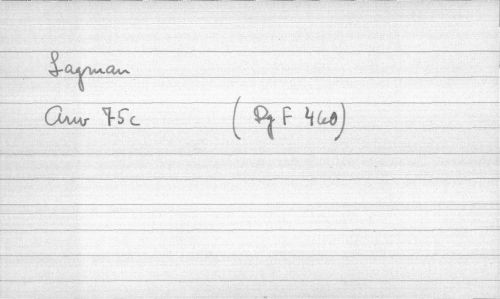 Lagman
Anv 75c (Dg F 460)